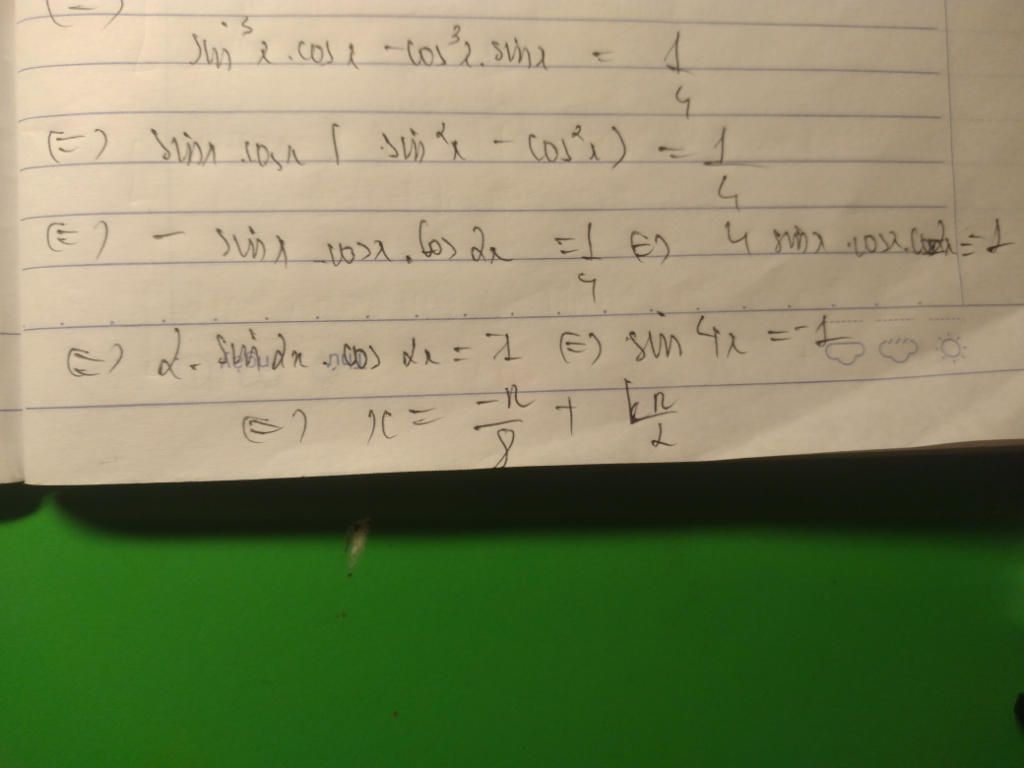 sin³x.cosx - cos³x.sinx = 1/4
(=) sinx.cosx ( sin²x - cos²x ) = 1/4
(=) - sinx.cosx.cos2x = 1/4 (=) 4 sinx.cosx.cos2x = 1
(=) 2.sin2x.cos2x = -1 (=) sin4x = -1
(=) x = -π/8 + kπ/2